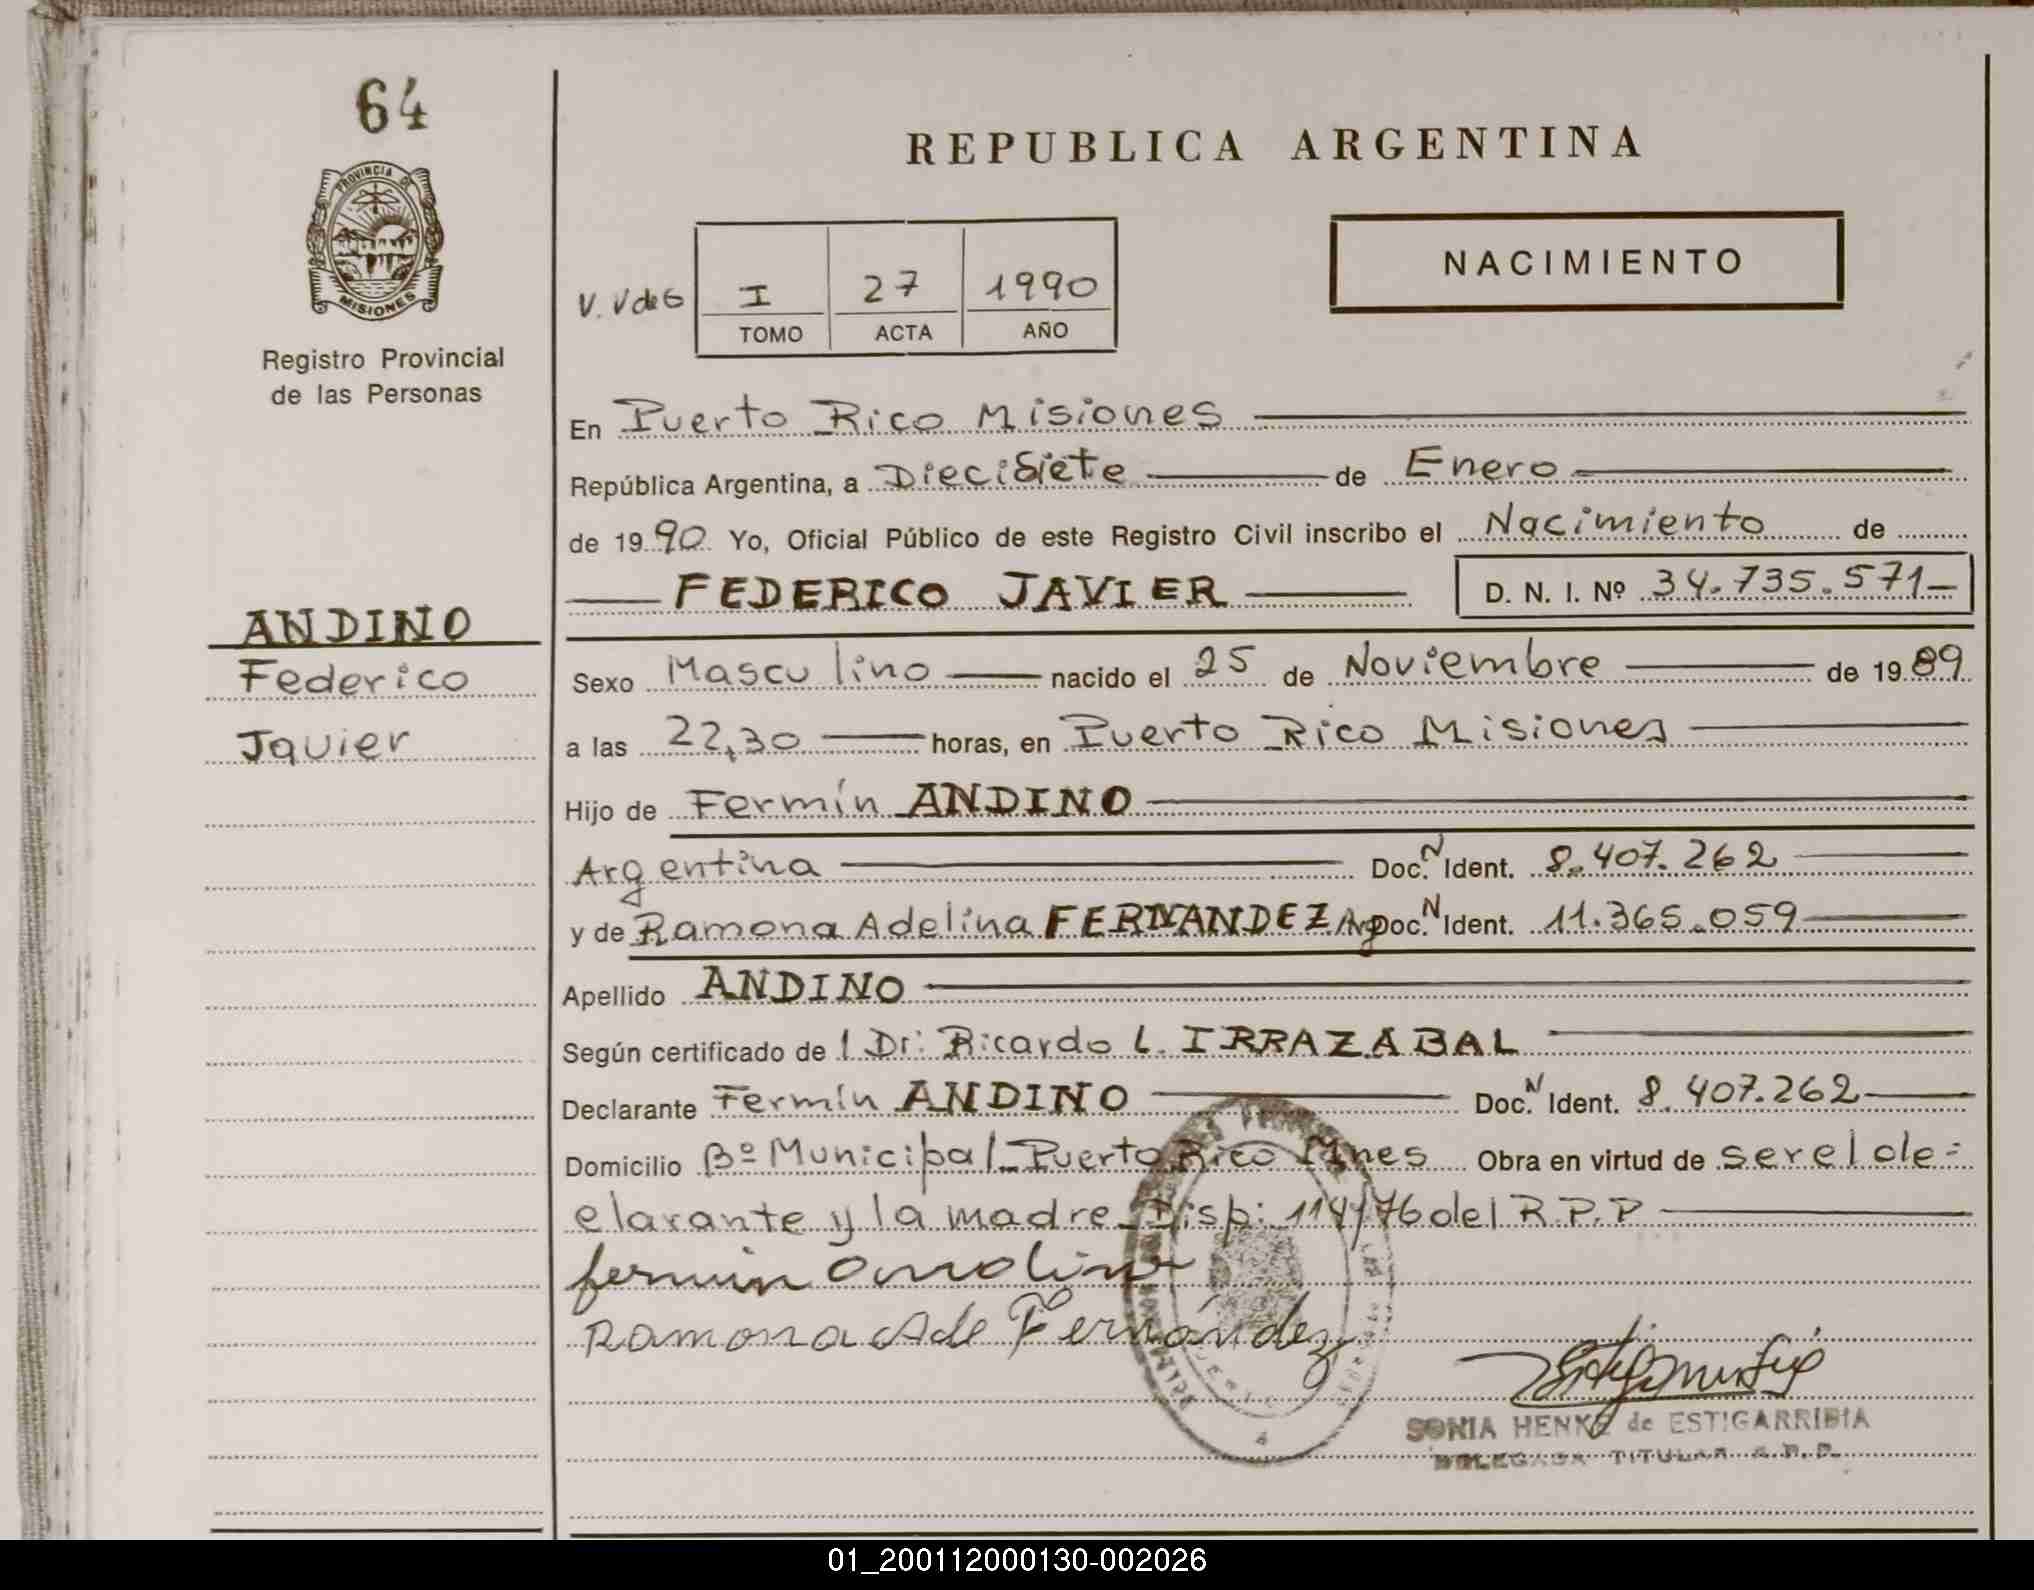 64
PROVINCIA DE
MISIONES
Registro Provincial
de las Personas
ANDINO
Federico
Javier
REPUBLICA ARGENTINA
NACIMIENTO
V. V de G
I 27 1990
TOMO ACTA AÑO
En Puerto Rico Misiones
República Argentina, a Diecisiete de Enero
de 1990 Yo, Oficial Público de este Registro Civil inscribo el Nacimiento de
FEDERICO JAVIER D. N. I. Nº 34.735.571
Sexo Masculino nacido el 25 de Noviembre de 1989
a las 22,30 horas, en Puerto Rico Misiones
Hijo de Fermín ANDINO
Argentina Doc. N Ident. 8.407.262
y de Ramona Adelina FERNANDEZ Arg Doc. N Ident. 11.365.059
Apellido ANDINO
Según certificado de l Dr: Ricardo L. IRRAZABAL
Declarante Fermín ANDINO Doc. N Ident. 8.407.262
Domicilio Bº Municipal Puerto Rico Mnes Obra en virtud de ser el de=
clarante y la madre Disp: 114/76 del R.P.P
fermin andino
Ramona Ade Fernández
SONIA HENKE de ESTIGARRIBIA
DELEGADA TITULAR R.P.P.
01_200112000130-002026